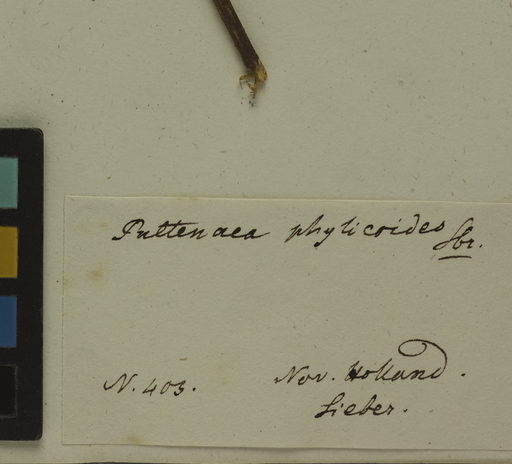 Pultenaea phylicoides Sbr.
N. 403. Nov. Holland.
Sieber.